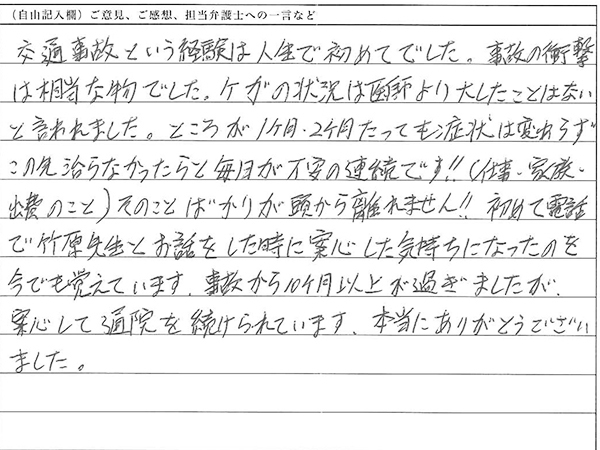 （自由記入欄）ご意見、ご感想、担当弁護士への一言など
交通事故という経験は人生で初めてでした。事故の衝撃
は相当な物でした。ケガの状況は医師より大したことはない
と言われました。ところが1ケ月・2ケ月たっても症状は変わらず
この先治らなかったらと毎日が不安の連続です!!（仕事・家族・
出費のこと）そのことばかりが頭から離れません!! 初めて電話
で竹原先生とお話をした時に安心した気持ちになったのを
今でも覚えています。事故から10ケ月以上が過ぎましたが、
安心して通院を続けられています。本当にありがとうござい
ました。